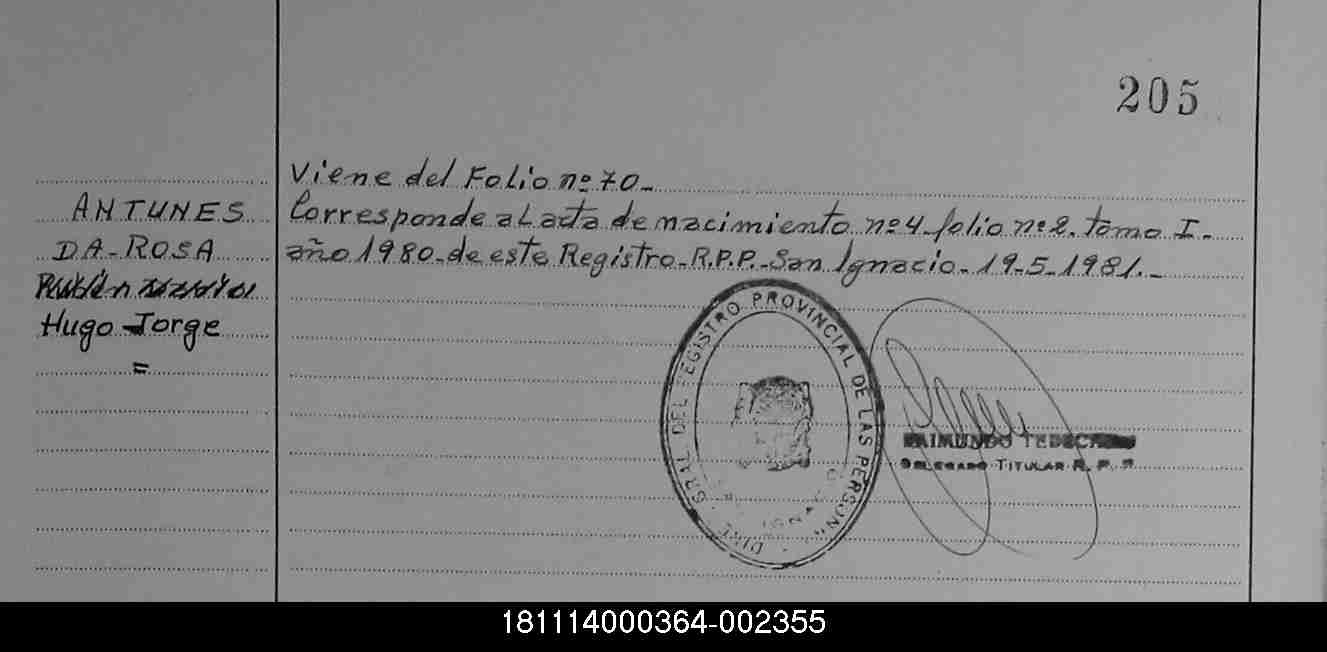 205
Viene del Folio nº 70-
ANTUNES
DA-ROSA
Hugo Jorge
=
Corresponde al acta de nacimiento nº 4-folio nº 2. tomo I-
año 1980-de este Registro-R.P.P.-San Ignacio-19-5-1981.-
GRAL DEL REGISTRO PROVINCIAL DE LAS PERSON
IGNACIO
RAIMUNDO
DELEGADO TITULAR R. P. P.
181114000364-002355